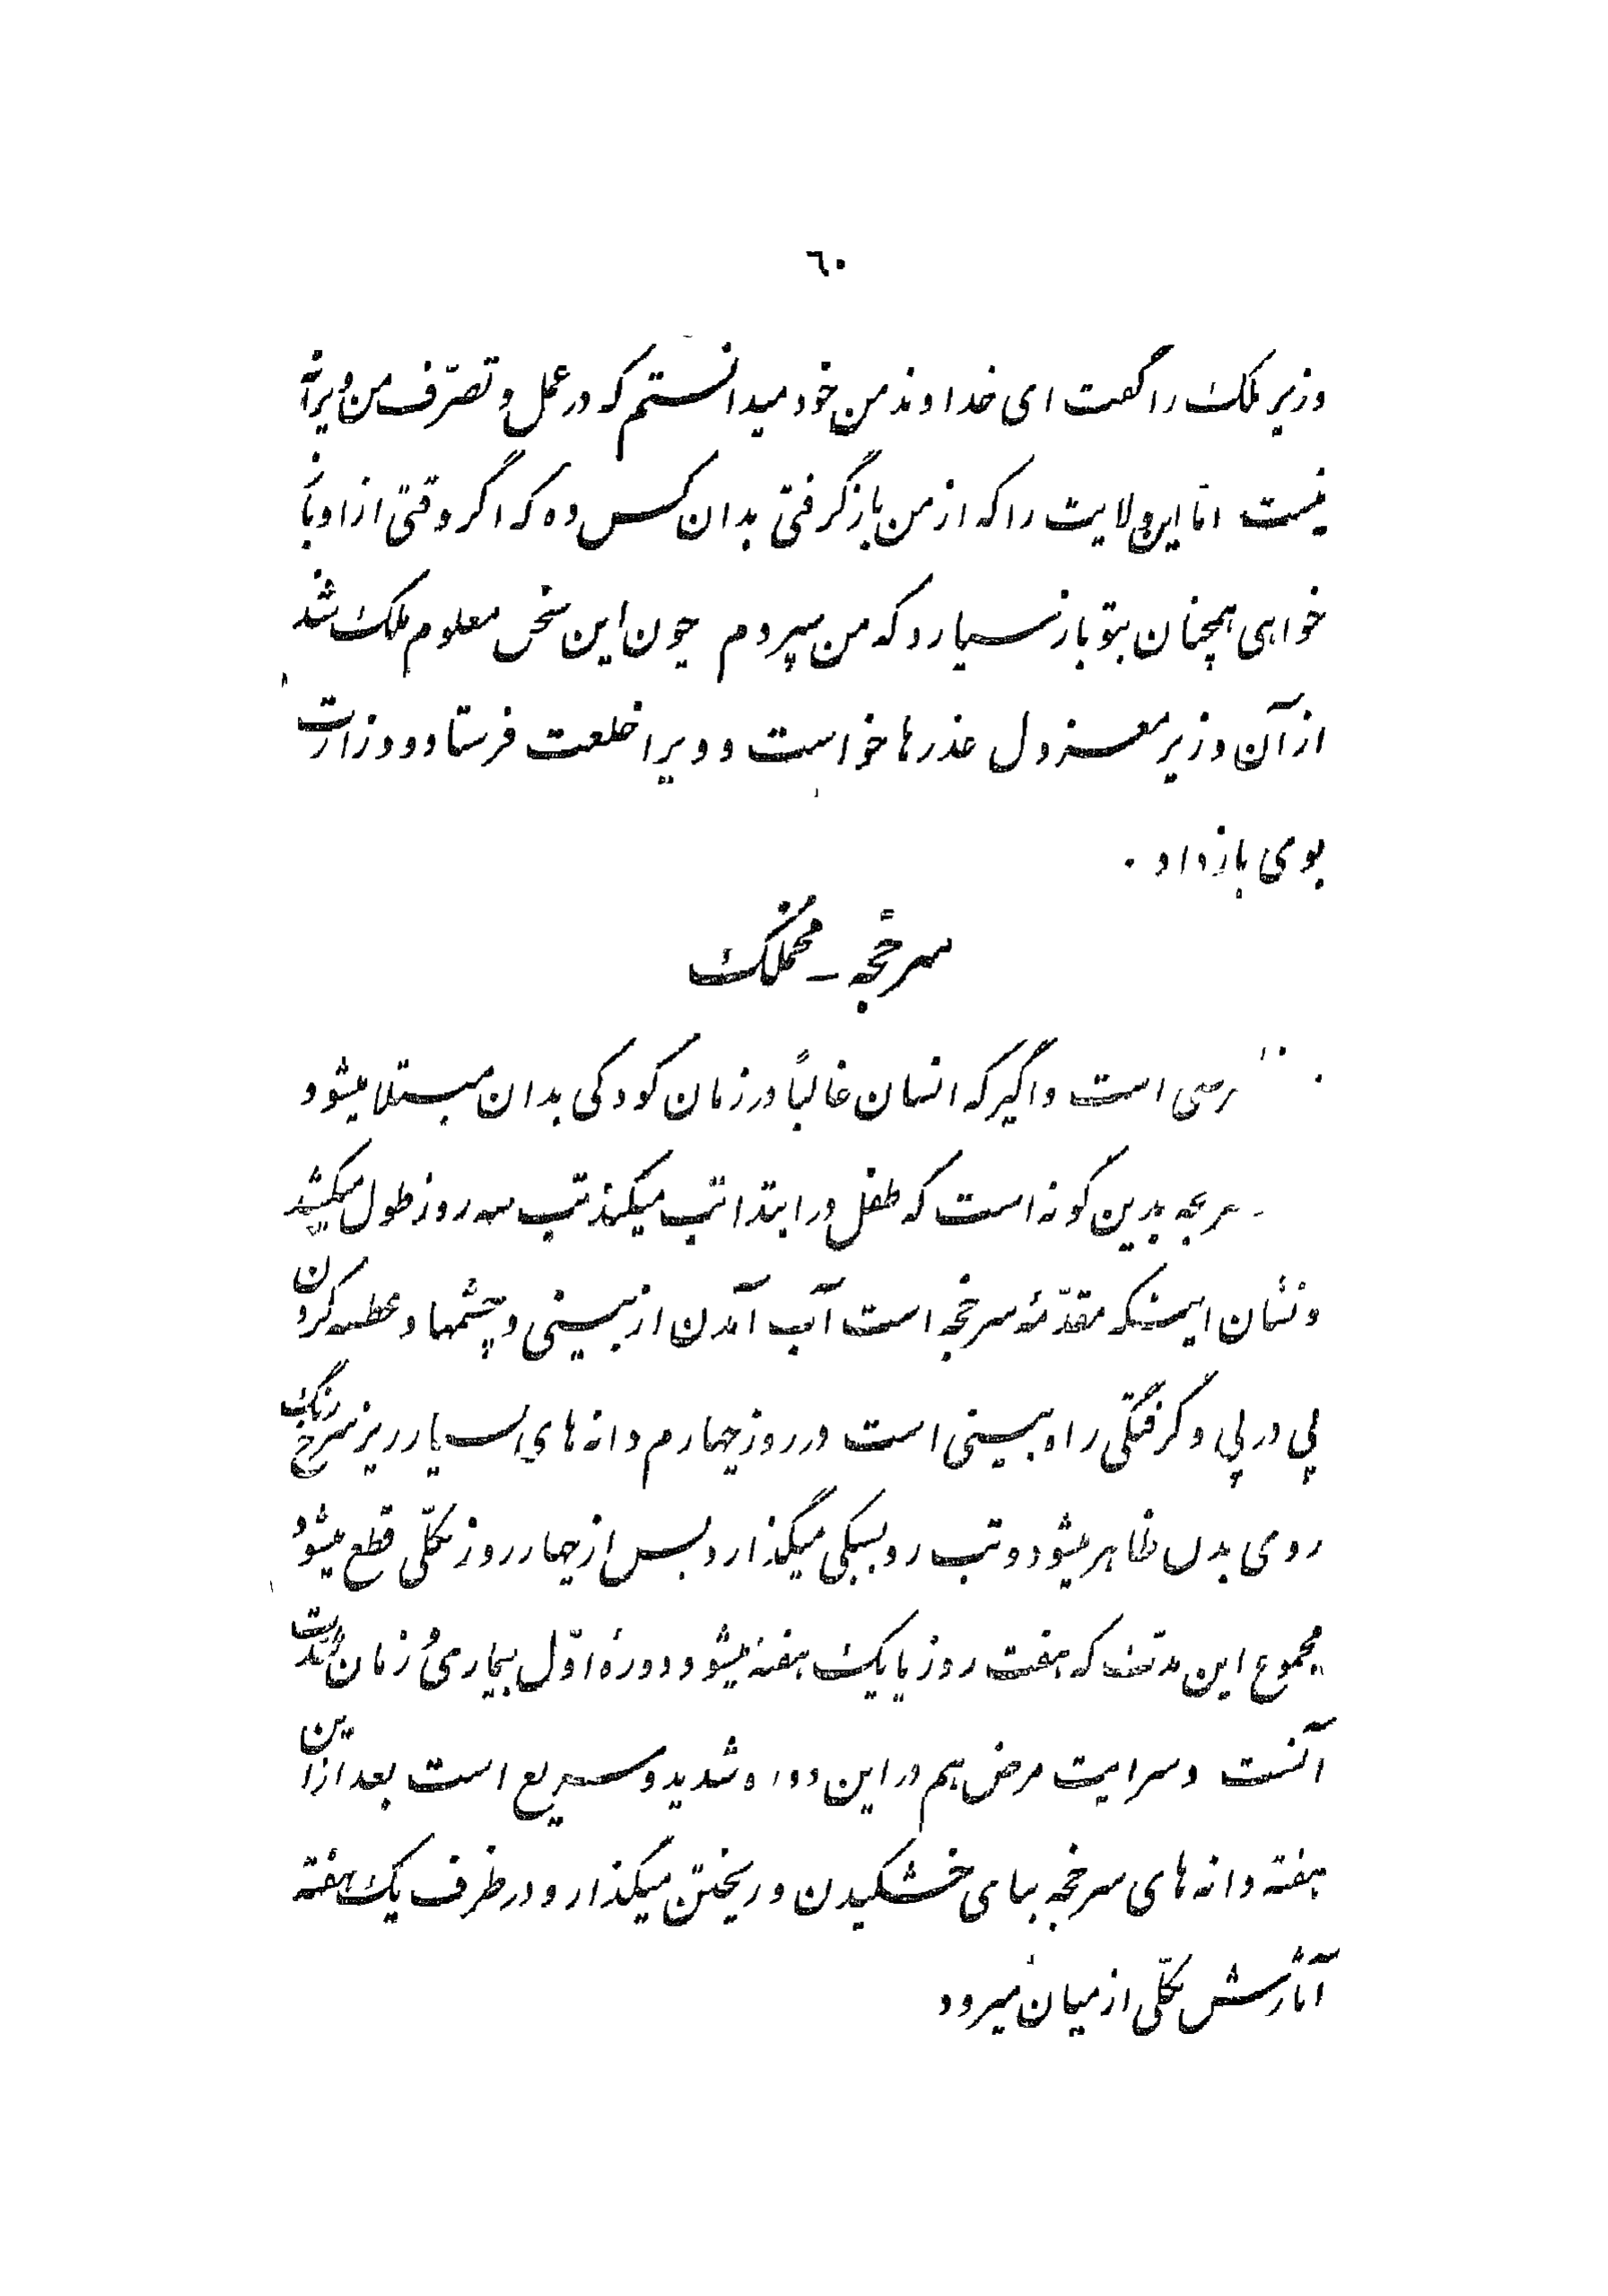 ٦٠
وزیر ملک را گفت ای خداوند من خود میدانستم که در عمل و تصرّف من ویرانی
نیست امّا این ولایت را که از من باز گرفتی بدان کس ده که اگر وقتی از او باز
خواهی همچنان بتو باز سپارد که من سپردم چون این سخن معلوم ملک شد
از آن وزیر معزول عذرها خواست و ویرا خلعت فرستاد و وزارت
بوی باز داد .
سرخجه - مخملک
است واگیر که انسان غالباً در زمان کودکی بدان مبتلا میشود
بدین گونه است که طفل در ابتدا تب میکند تب سه روز طول میکشد
و نشان اینکه مقدّمهٔ سرخجه است آب آمدن از بینی و چشمها و عطسه کردن
پی در پی و گرفتگی راه بینی است در روز چهارم دانه های بسیار ریز سرخ رنگ
روی بدن ظاهر میشود و تب رو بسبکی میگذارد و پس از چهار روز بکلّی قطع میشود
مجموع این مدّت که هفت روز یا یک هفته میشود دورهٔ اوّل بیماری و زمان شدّت
آنست و سرایت مرض هم در این دوره شدید و سریع است بعد از این
هفته دانه های سرخجه بنای خشکیدن و ریختن میگذارد و در ظرف یک هفته
آثارش بکلّی از میان میرود